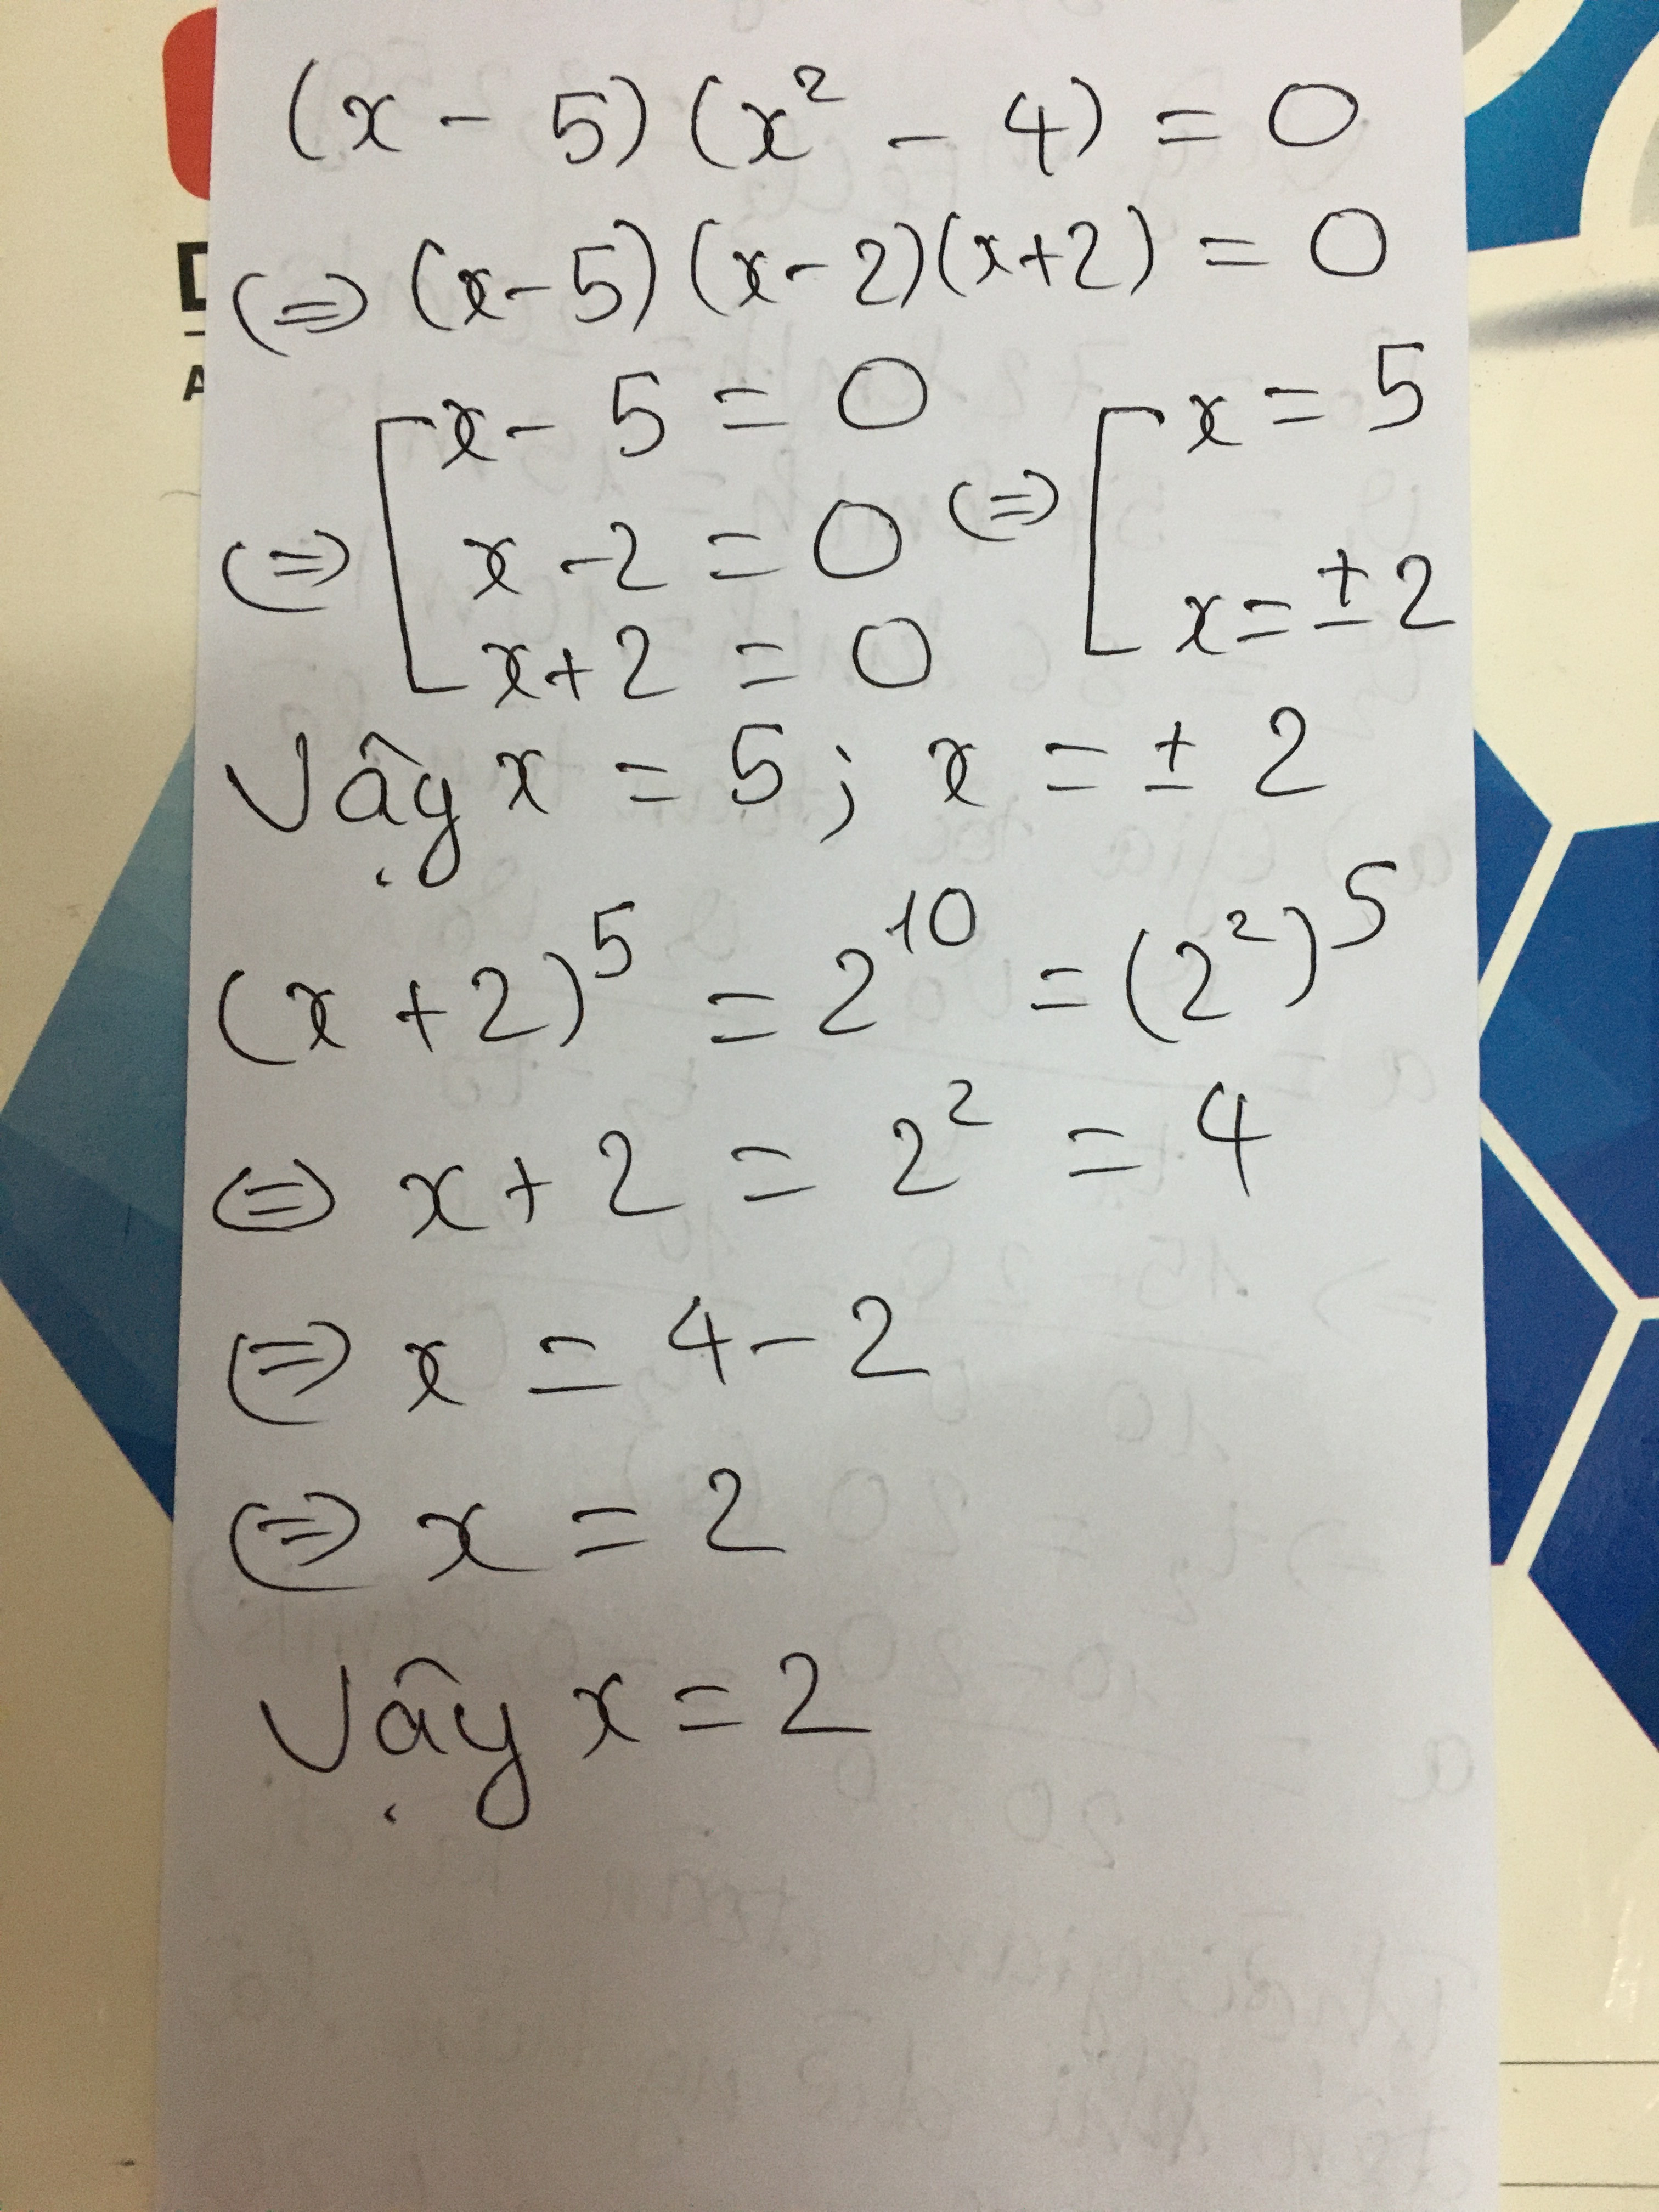 (x - 5)(x² - 4) = 0
(=) (x-5)(x-2)(x+2) = 0
(=) [ x - 5 = 0 (=) [ x = 5
x - 2 = 0
x + 2 = 0 x = ± 2
Vậy x = 5; x = ± 2
(x + 2)⁵ = 2¹⁰ = (2²)⁵
(=) x + 2 = 2² = 4
(=) x = 4 - 2
(=) x = 2
Vậy x = 2